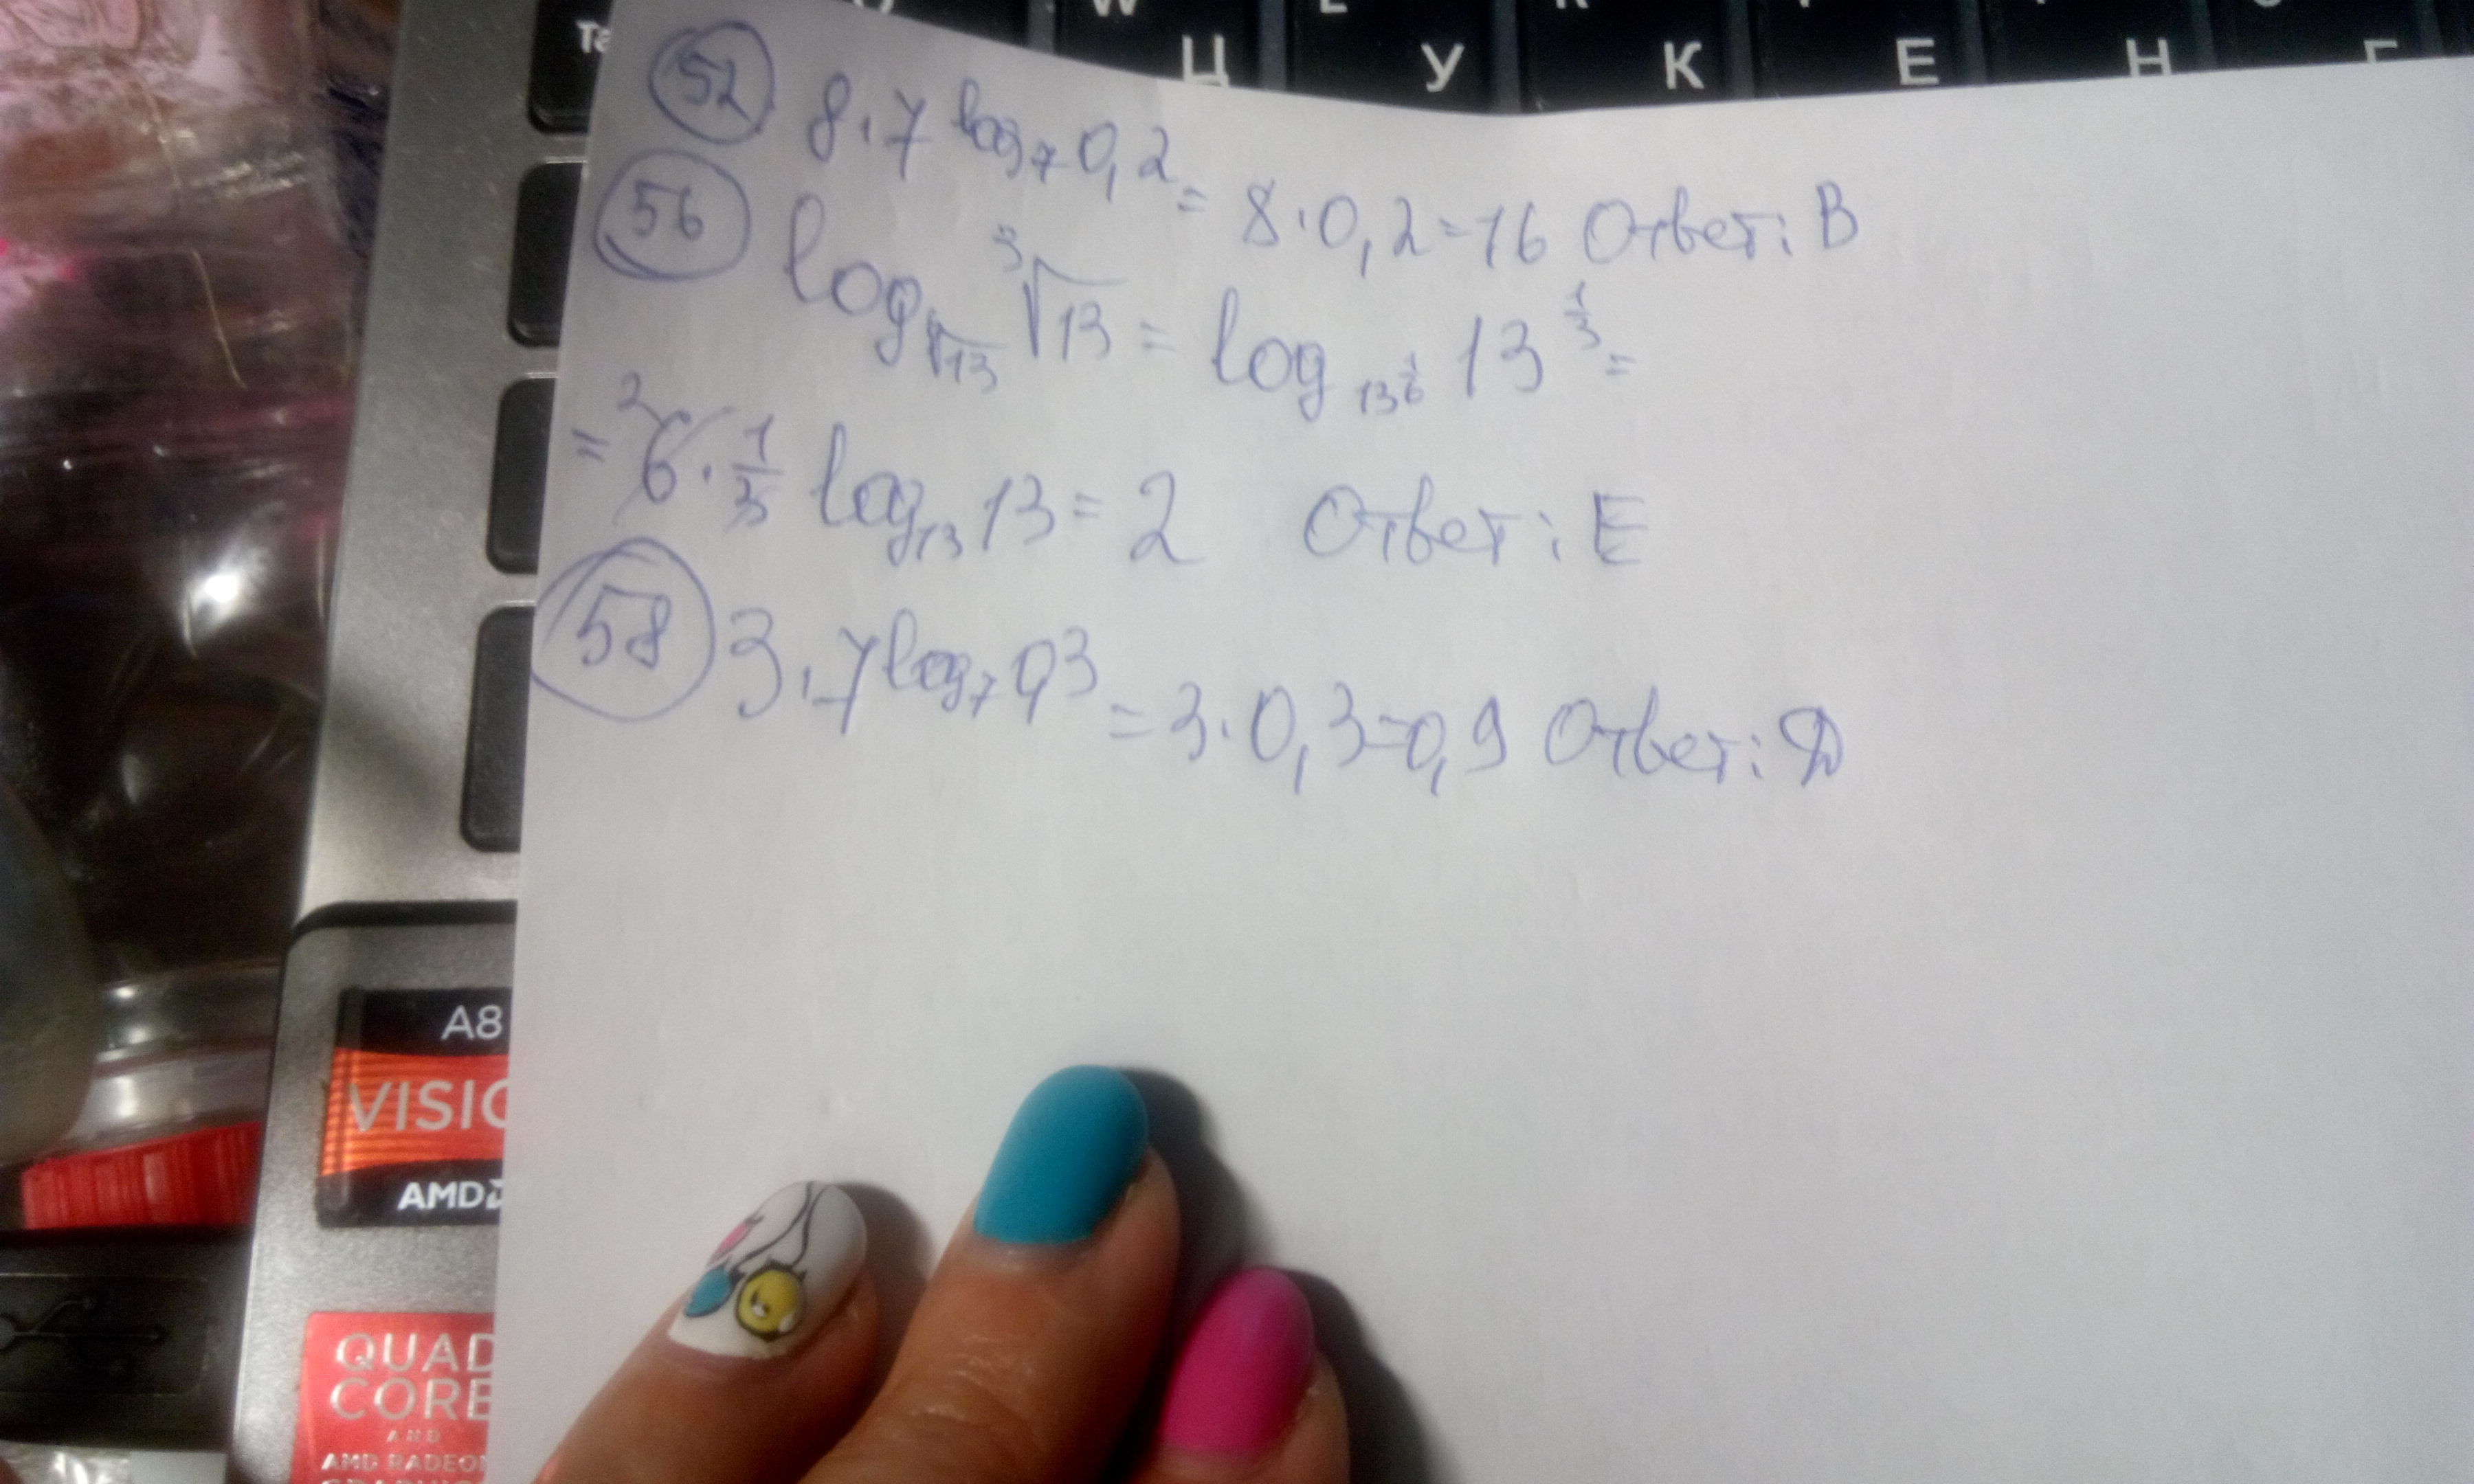 Ц У К Е Н
52 8·7^{log_7 0,2} = 8·0,2=16 Ответ: В
56 log_{\sqrt[6]{13}} \sqrt[3]{13} = log_{13^{1/6}} 13^{1/3} =
= 6·1/3 log_{13} 13 = 2 Ответ: Е
58 3·7^{log_7 0,3} = 3·0,3=0,9 Ответ: Д
A8
VISIO
AMD
QUAD
CORE
AND
AMD RADEON